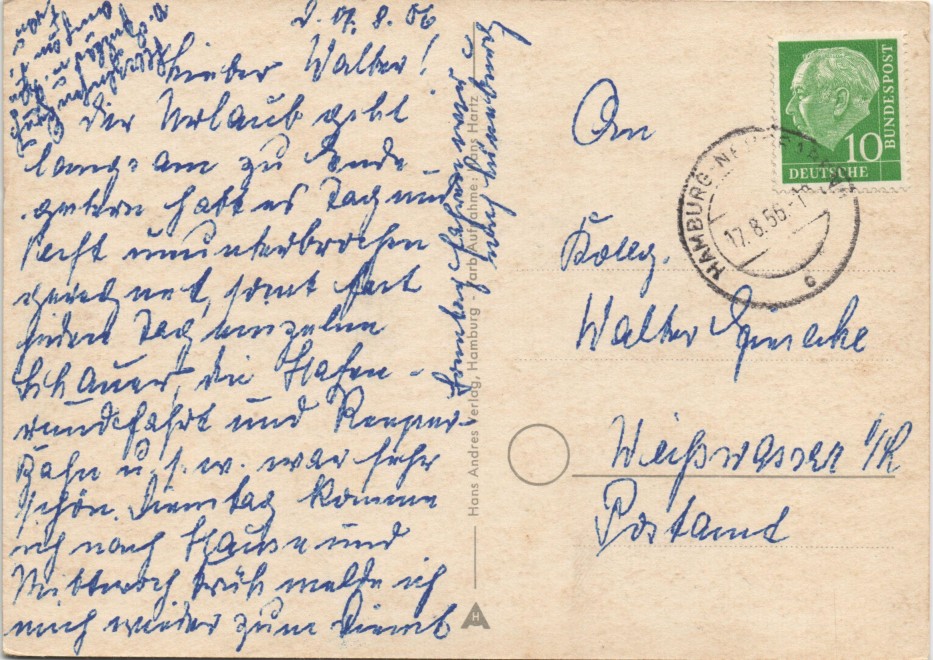 d. 17. 8. 56
Lieber Walter!
Der Urlaub geht
langsam zu Ende
gestern hatt es Tag und
Nacht ununterbrochen
geregnet, sonst fast
jeden Tag einzelne
Schauer, die Hafen-
rundfahrt und Reeper-
bahn u. s. w. war sehr
schön. Dienstag komme
ich nach Hause und
Mittwoch früh melde ich
mich wieder zum Dienst
Sonntag fahren wir
nach
Hans Andres Verlag, Hamburg - Farb-Aufnahme: Hans Hartz
H
10
DEUTSCHE
BUNDESPOST
HAMBURG-
17.8.56.-1
c
An
Kolleg.
Walter
Weißwasser O/L
Postamt